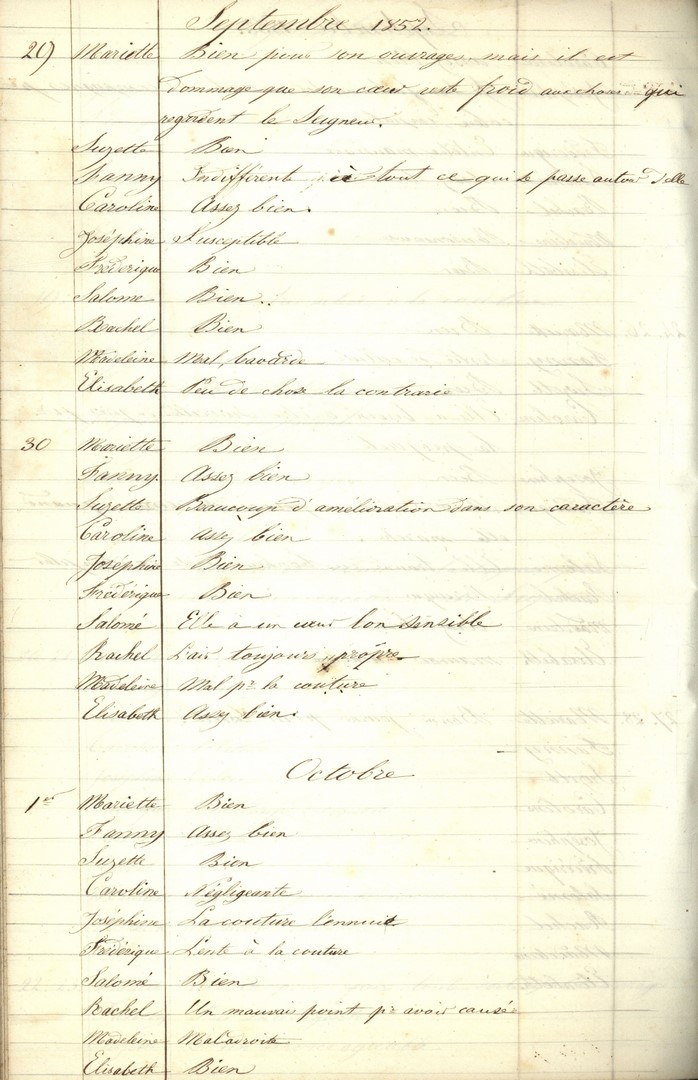 Septembre 1852.
29 Mariette Bien pour son ouvrage, mais il est
dommage que son cœur reste froid aux choses qui
regardent le Seigneur.
Suzette Bien
Fanny Indifférente à tout ce qui se passe autour d'elle
Caroline Assez bien.
Joséphine Susceptible
Frédérique Bien
Salomé Bien.
Rachel Bien
Madeleine Mal, bavarde
Elisabeth Peu de chose la contrarie
30 Mariette Bien
Fanny. Assez bien
Suzette Beaucoup d'amélioration dans son caractère
Caroline assez bien
Joséphine Bien
Frédérique Bien
Salomé Elle à un cœur bon sensible
Rachel L'air toujours propre
Madeleine Mal pr la couture
Elisabeth Assez bien.
Octobre
1er Mariette Bien
Fanny Assez bien
Suzette Bien
Caroline Négligeante
Joséphine La couture l'ennuie
Frédérique Lente à la couture
Salomé Bien
Rachel Un mauvais point pr avoir causée
Madeleine Maladroite
Elisabeth Bien